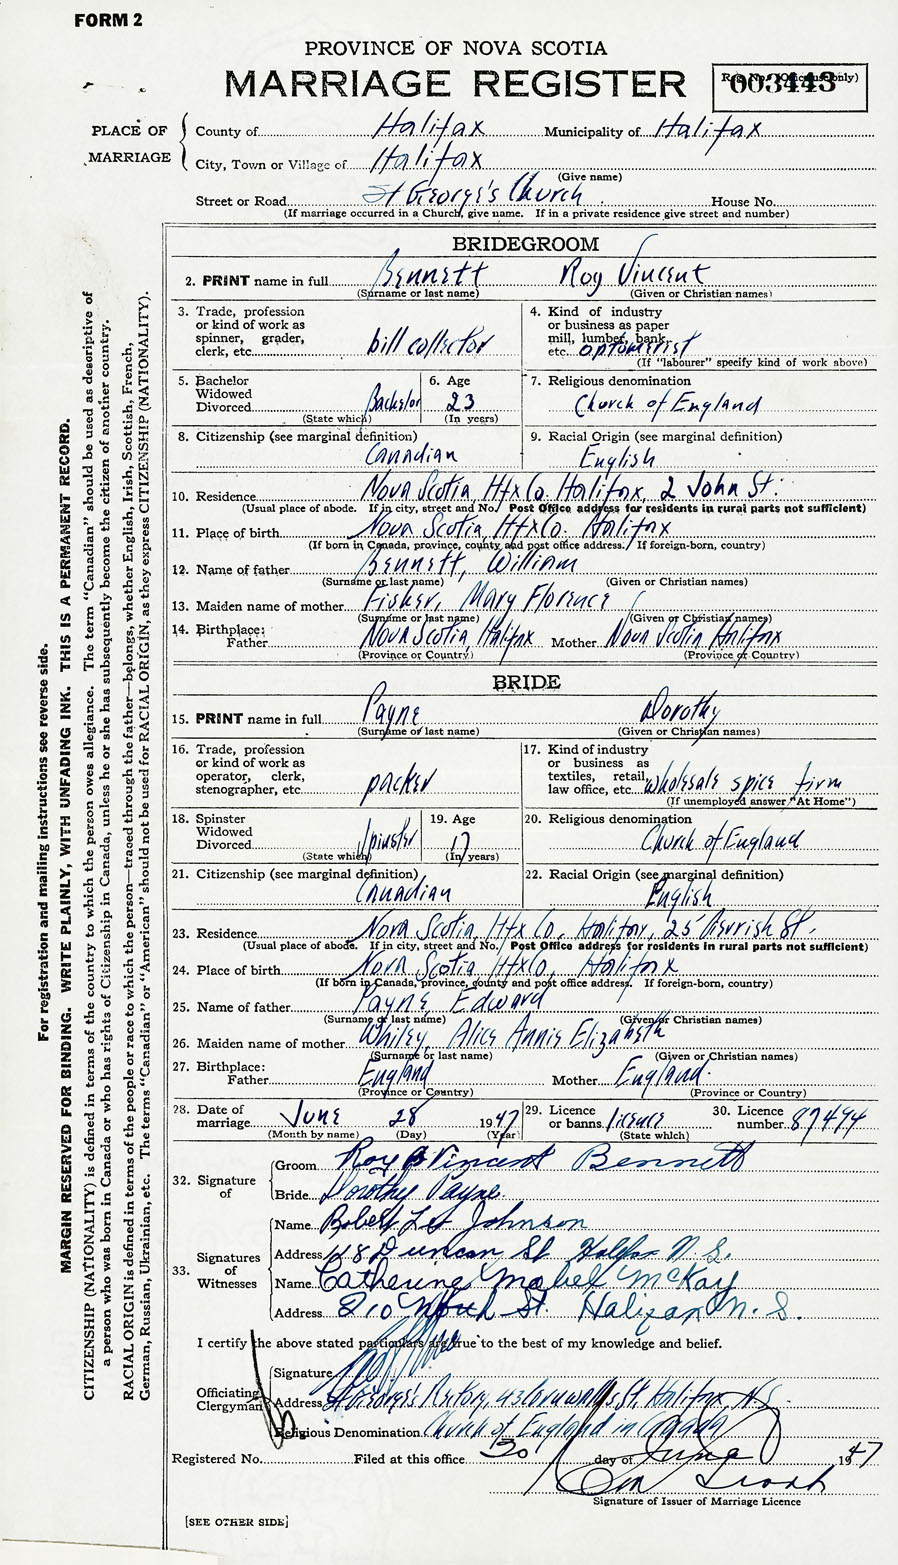 FORM 2
PROVINCE OF NOVA SCOTIA
MARRIAGE REGISTER
Reg. No. (Office use only)
003443
PLACE OF MARRIAGE
County of Halifax Municipality of Halifax
City, Town or Village of Halifax
(Give name)
Street or Road St George's Church House No.
(If marriage occurred in a Church, give name. If in a private residence give street and number)
BRIDEGROOM
2. PRINT name in full Bennett Roy Vincent
(Surname or last name) (Given or Christian names)
3. Trade, profession
or kind of work as
spinner, grader,
clerk, etc. bill collector
4. Kind of industry
or business as paper
mill, lumber, bank,
etc. optometrist
(If "labourer" specify kind of work above)
5. Bachelor
Widowed
Divorced Bachelor
(State which)
6. Age
23
(In years)
7. Religious denomination
Church of England
8. Citizenship (see marginal definition)
Canadian
9. Racial Origin (see marginal definition)
English
10. Residence Nova Scotia, Hfx Co. Halifax, 2 John St.
(Usual place of abode. If in city, street and No. Post Office address for residents in rural parts not sufficient)
11. Place of birth Nova Scotia, Hfx Co. Halifax
(If born in Canada, province, county and post office address. If foreign-born, country)
12. Name of father Bennett, William
(Surname or last name) (Given or Christian names)
13. Maiden name of mother Fisher, Mary Florence
(Surname or last name) (Given or Christian names)
14. Birthplace:
Father Nova Scotia, Halifax Mother Nova Scotia Halifax
(Province or Country) (Province or Country)
BRIDE
15. PRINT name in full Payne Dorothy
(Surname or last name) (Given or Christian names)
16. Trade, profession
or kind of work as
operator, clerk,
stenographer, etc. packer
17. Kind of industry
or business as
textiles, retail,
law office, etc. wholesale spice firm
(If unemployed answer "At Home")
18. Spinster
Widowed
Divorced Spinster
(State which)
19. Age
17
(In years)
20. Religious denomination
Church of England
21. Citizenship (see marginal definition)
Canadian
22. Racial Origin (see marginal definition)
English
23. Residence Nova Scotia, Hfx Co, Halifax, 25 St.
(Usual place of abode. If in city, street and No. Post Office address for residents in rural parts not sufficient)
24. Place of birth Nova Scotia Hfx Co, Halifax
(If born in Canada, province, county and post office address. If foreign-born, country)
25. Name of father Payne Edward
(Surname or last name) (Given or Christian names)
26. Maiden name of mother Alice Annie Elizabeth
(Surname or last name) (Given or Christian names)
27. Birthplace:
Father England Mother England.
(Province or Country) (Province or Country)
28. Date of
marriage June 28 1947
(Month by name) (Day) (Year)
29. Licence
or banns licence
(State which)
30. Licence
number 87494
32. Signature of
Groom Roy Vincent Bennett
Bride Dorothy Payne.
33. Signatures of Witnesses
Name Robert Johnson
Address 118 Duncan St Halifax N.S.
Name Catherine Mabel McKay
Address 210 North St. Halifax N.S.
I certify the above stated particulars are true to the best of my knowledge and belief.
Officiating Clergyman
Signature
Address St George's Rectory, 43 Cornwallis St, Halifax, N.S.
Religious Denomination Church of England in Canada
Registered No. Filed at this office 30 day of June 1947
Signature of Issuer of Marriage Licence
[SEE OTHER SIDE]
For registration and mailing instructions see reverse side.
MARGIN RESERVED FOR BINDING. WRITE PLAINLY, WITH UNFADING INK. THIS IS A PERMANENT RECORD.
CITIZENSHIP (NATIONALITY) is defined in terms of the country to which the person owes allegiance. The term "Canadian" should be used as descriptive of
a person who was born in Canada or who has rights of Citizenship in Canada, unless he or she has subsequently become the citizen of another country.
RACIAL ORIGIN is defined in terms of the people or race to which the person—traced through the father—belongs, whether English, Irish, Scottish, French,
German, Russian, Ukrainian, etc. The terms "Canadian" or "American" should not be used for RACIAL ORIGIN, as they express CITIZENSHIP (NATIONALITY).